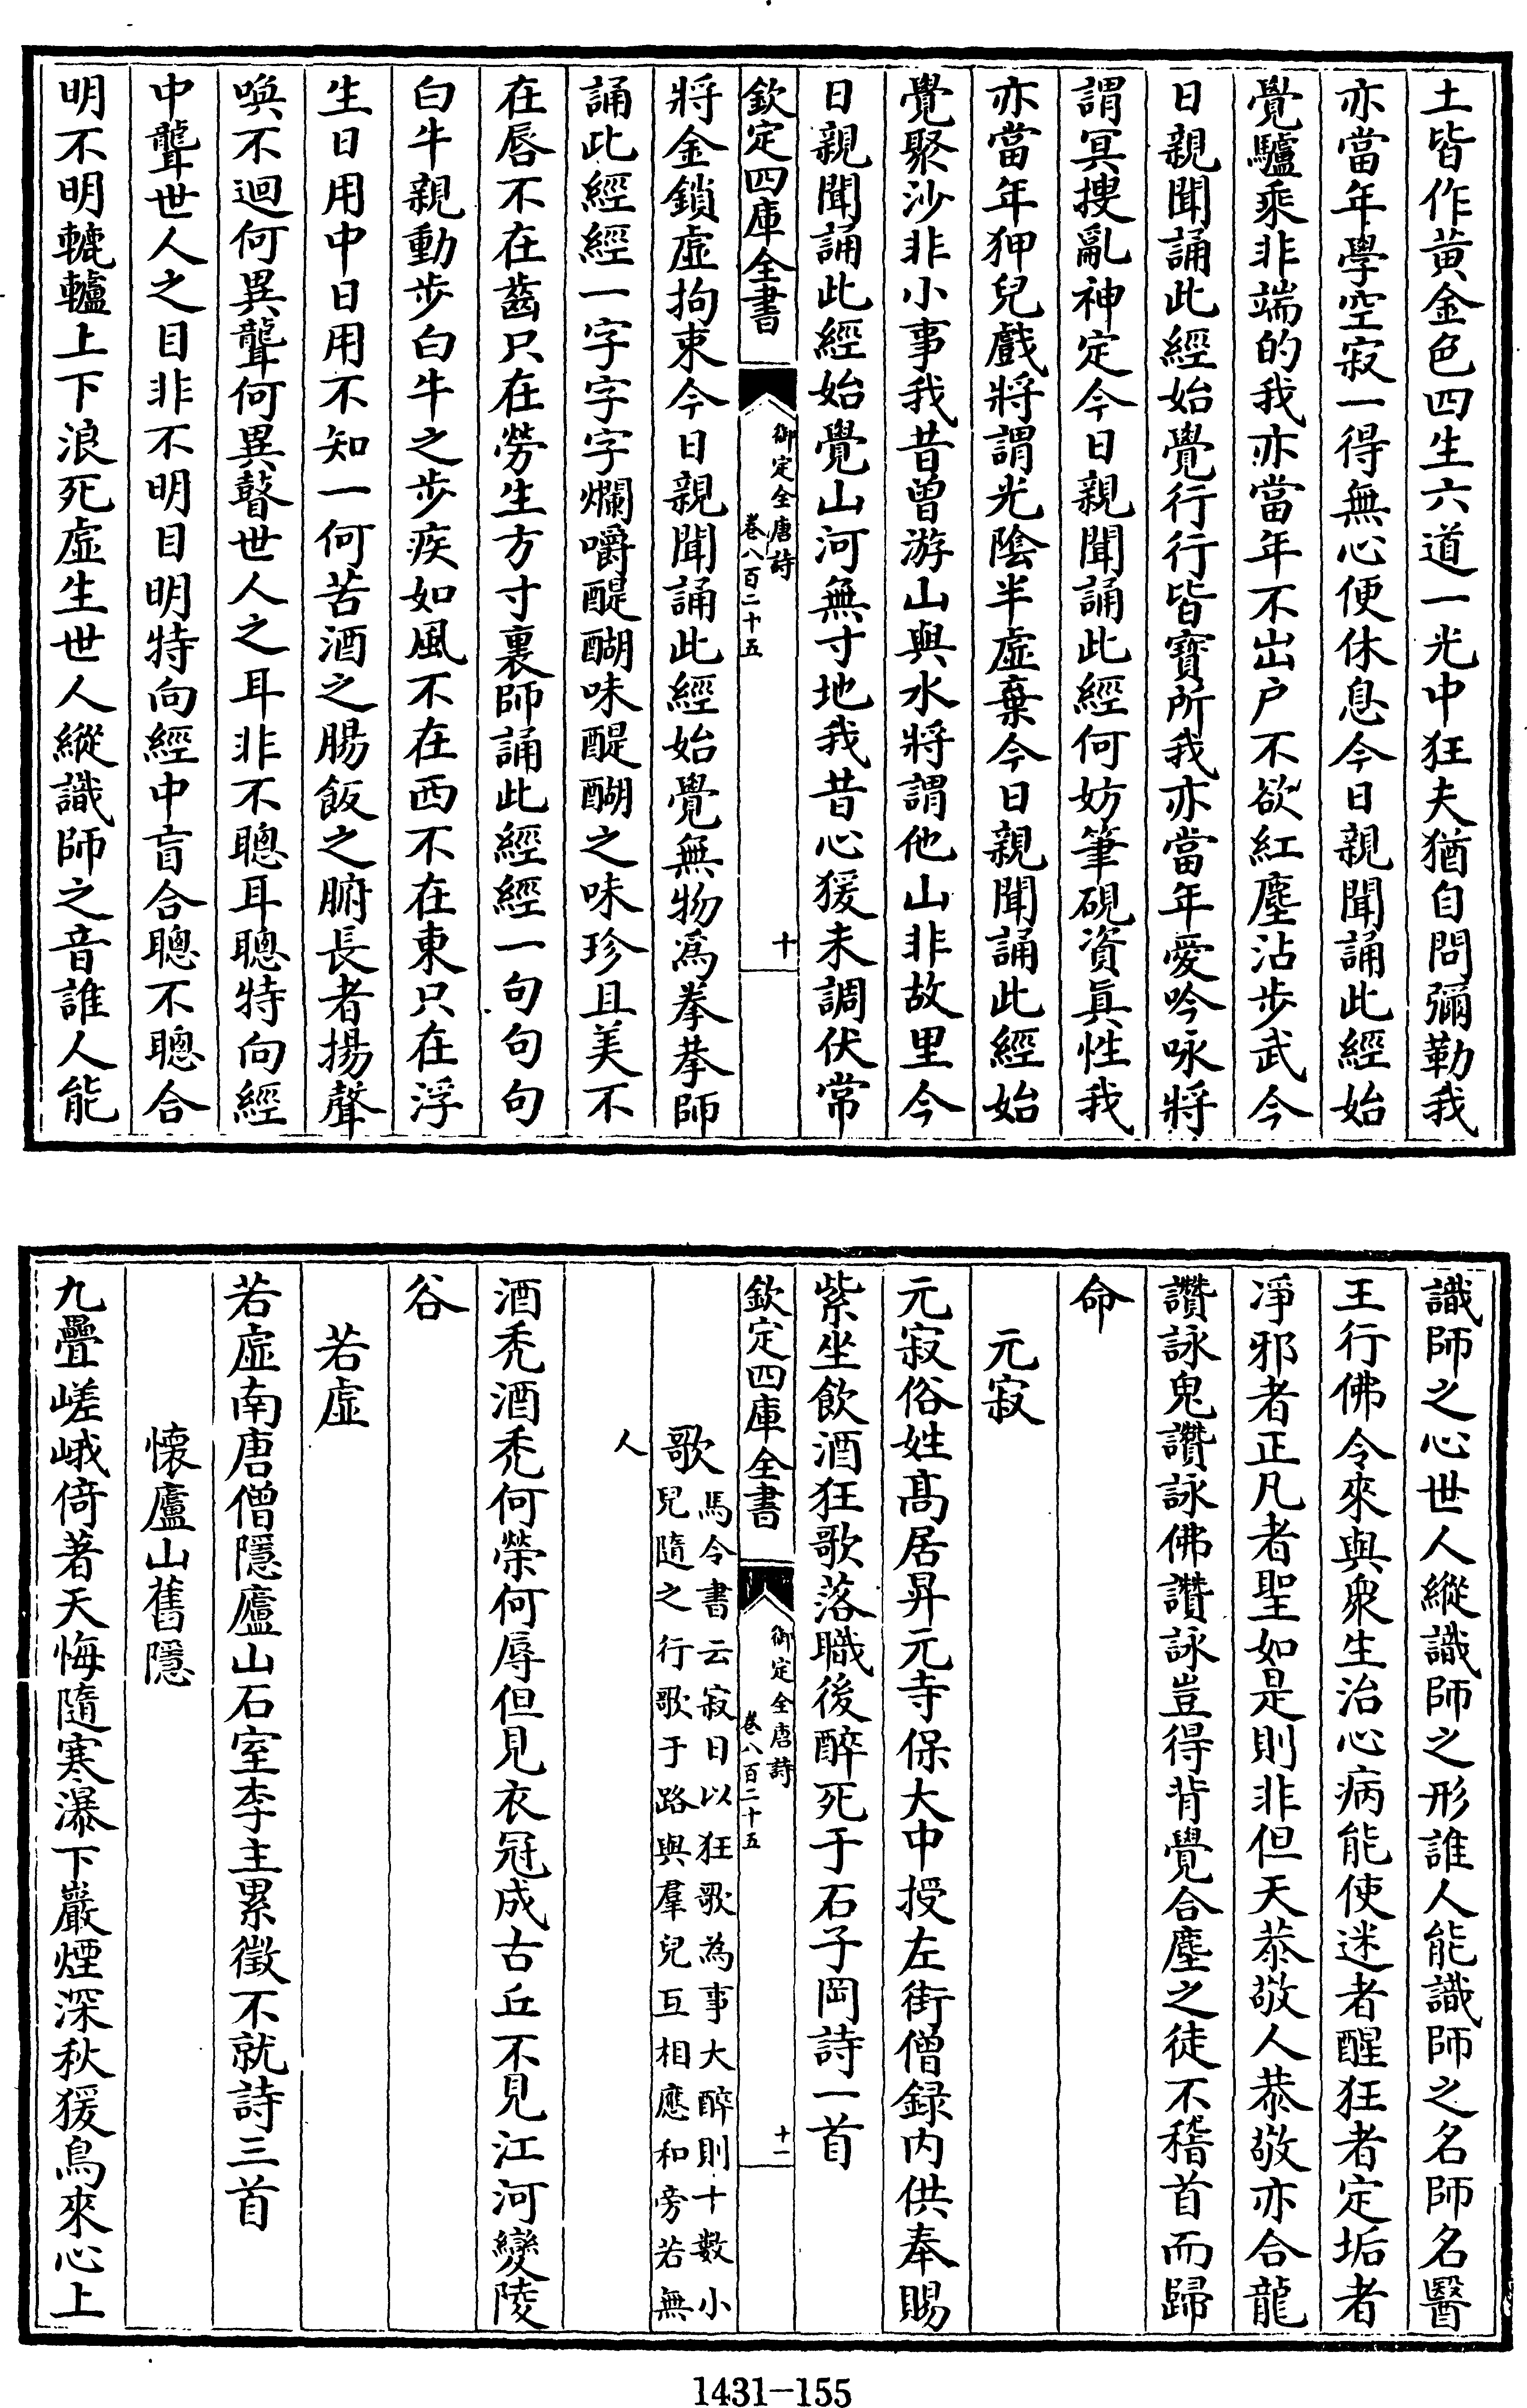 土皆作黄金色四生六道一光中狂夫猶自問彌勒我
亦當年學空寂一得無心便休息今日親聞誦此經始
覺驢乘非端的我亦當年不出户不欲紅塵沾步武今
日親聞誦此經始覺行行皆寶所我亦當年愛吟咏將
謂冥搜亂神定今日親聞誦此經何妨筆硯資眞性我
亦當年狎兒戲將謂光陰半虚棄今日親聞誦此經始
覺聚沙非小事我昔曾游山與水將謂他山非故里今
日親聞誦此經始覺山河無寸地我昔心猨未調伏常
欽定四庫全書
御定全唐詩
卷八百二十五
十
將金鎖虚拘束今日親聞誦此經始覺無物爲拳拳師
誦此經經一字字字爛嚼醍醐味醍醐之味珍且美不
在唇不在齒只在勞生方寸裏師誦此經經一句句句
白牛親動步白牛之步疾如風不在西不在東只在浮
生日用中日用不知一何苦酒之腸飯之腑長者揚聲
喚不迴何異聾何異瞽世人之耳非不聰耳聰特向經
中聾世人之目非不明目明特向經中盲合聰不聰合
明不明轆轤上下浪死虚生世人縱識師之音誰人能
識師之心世人縱識師之形誰人能識師之名師名醫
王行佛令來與衆生治心病能使迷者醒狂者定垢者
淨邪者正凡者聖如是則非但天恭敬人恭敬亦合龍
讚詠鬼讚詠佛讚詠豈得背覺合塵之徒不稽首而歸
命
元寂
元寂俗姓髙居昇元寺保大中授左街僧録内供奉賜
紫坐飲酒狂歌落職後醉死于石子岡詩一首
欽定四庫全書
御定全唐詩
卷八百二十五
十一
歌馬令書云寂日以狂歌為事大醉則十數小
兒隨之行歌于路與羣兒互相應和旁若無
人
酒禿酒禿何榮何辱但見衣冠成古丘不見江河變陵
谷
若虚
若虚南唐僧隱廬山石室李主累徵不就詩三首
懷廬山舊隱
九疊嵯峨倚著天悔隨寒瀑下巖煙深秋猨鳥來心上
1431-155